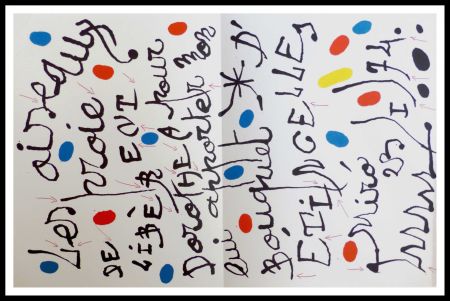 Les oiseaux
DE proie
LIBÈRENT
DOROTHEA pour
lui apporter mon
Bouquet D'
ETINCELLES
Miró.
I/74.